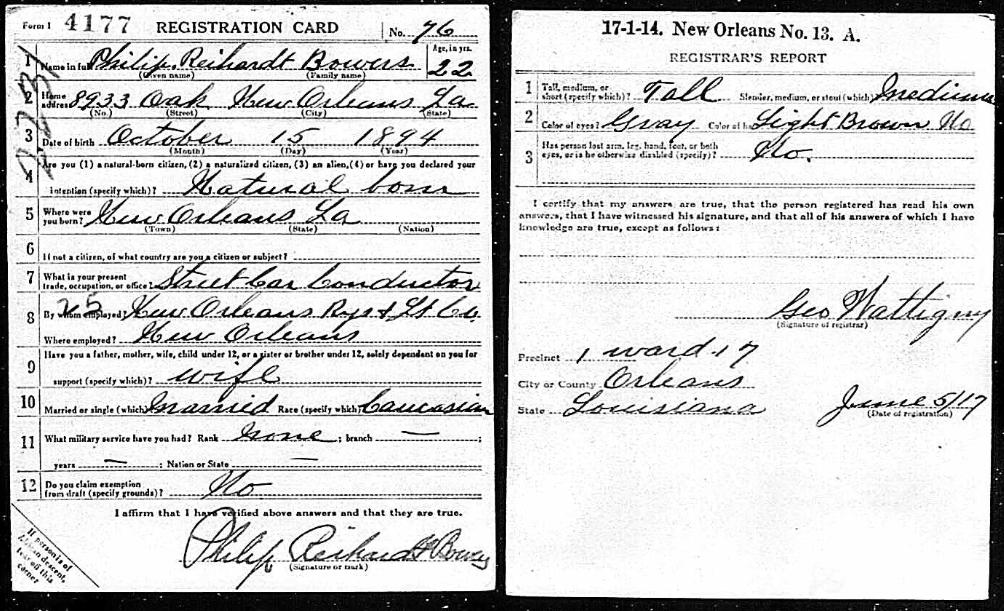 Form 1 4177 REGISTRATION CARD No. 76
1 Name in full Philip Reihardt Bowers Age, in yrs. 22
(Given name) (Family name)
2 Home address 8933 Oak New Orleans La
(No.) (Street) (City) (State)
3 Date of birth October 15 1894
(Month) (Day) (Year)
4 Are you (1) a natural-born citizen, (2) a naturalized citizen, (3) an alien, (4) or have you declared your
intention (specify which)? Natural born
5 Where were you born? New Orleans La
(Town) (State) (Nation)
6 If not a citizen, of what country are you a citizen or subject?
7 What is your present trade, occupation, or office? Street Car Conductor
25
8 By whom employed? New Orleans Rys & Lt Co.
Where employed? New Orleans
9 Have you a father, mother, wife, child under 12, or a sister or brother under 12, solely dependent on you for
support (specify which)? wife
10 Married or single (which)? married Race (specify which)? Caucasian
11 What military service have you had? Rank none ; branch — ;
years — ; Nation or State —
12 Do you claim exemption from draft (specify grounds)? No
I affirm that I have verified above answers and that they are true.
Philip Reihardt Bowers
(Signature or mark)
If person is of
African descent,
tear off this
corner
17-1-14. New Orleans No. 13. A.
REGISTRAR'S REPORT
1 Tall, medium, or short (specify which)? Tall Slender, medium, or stout (which)? medium
2 Color of eyes? Gray Color of hair? Light Brown No
3 Has person lost arm, leg, hand, foot, or both eyes, or is he otherwise disabled (specify)? No.
I certify that my answers are true, that the person registered has read his own
answers, that I have witnessed his signature, and that all of his answers of which I have
knowledge are true, except as follows:
Geo Wattigny
(Signature of registrar)
Precinct 1 ward-17
City or County Orleans
State Louisiana June 5/17
(Date of registration)